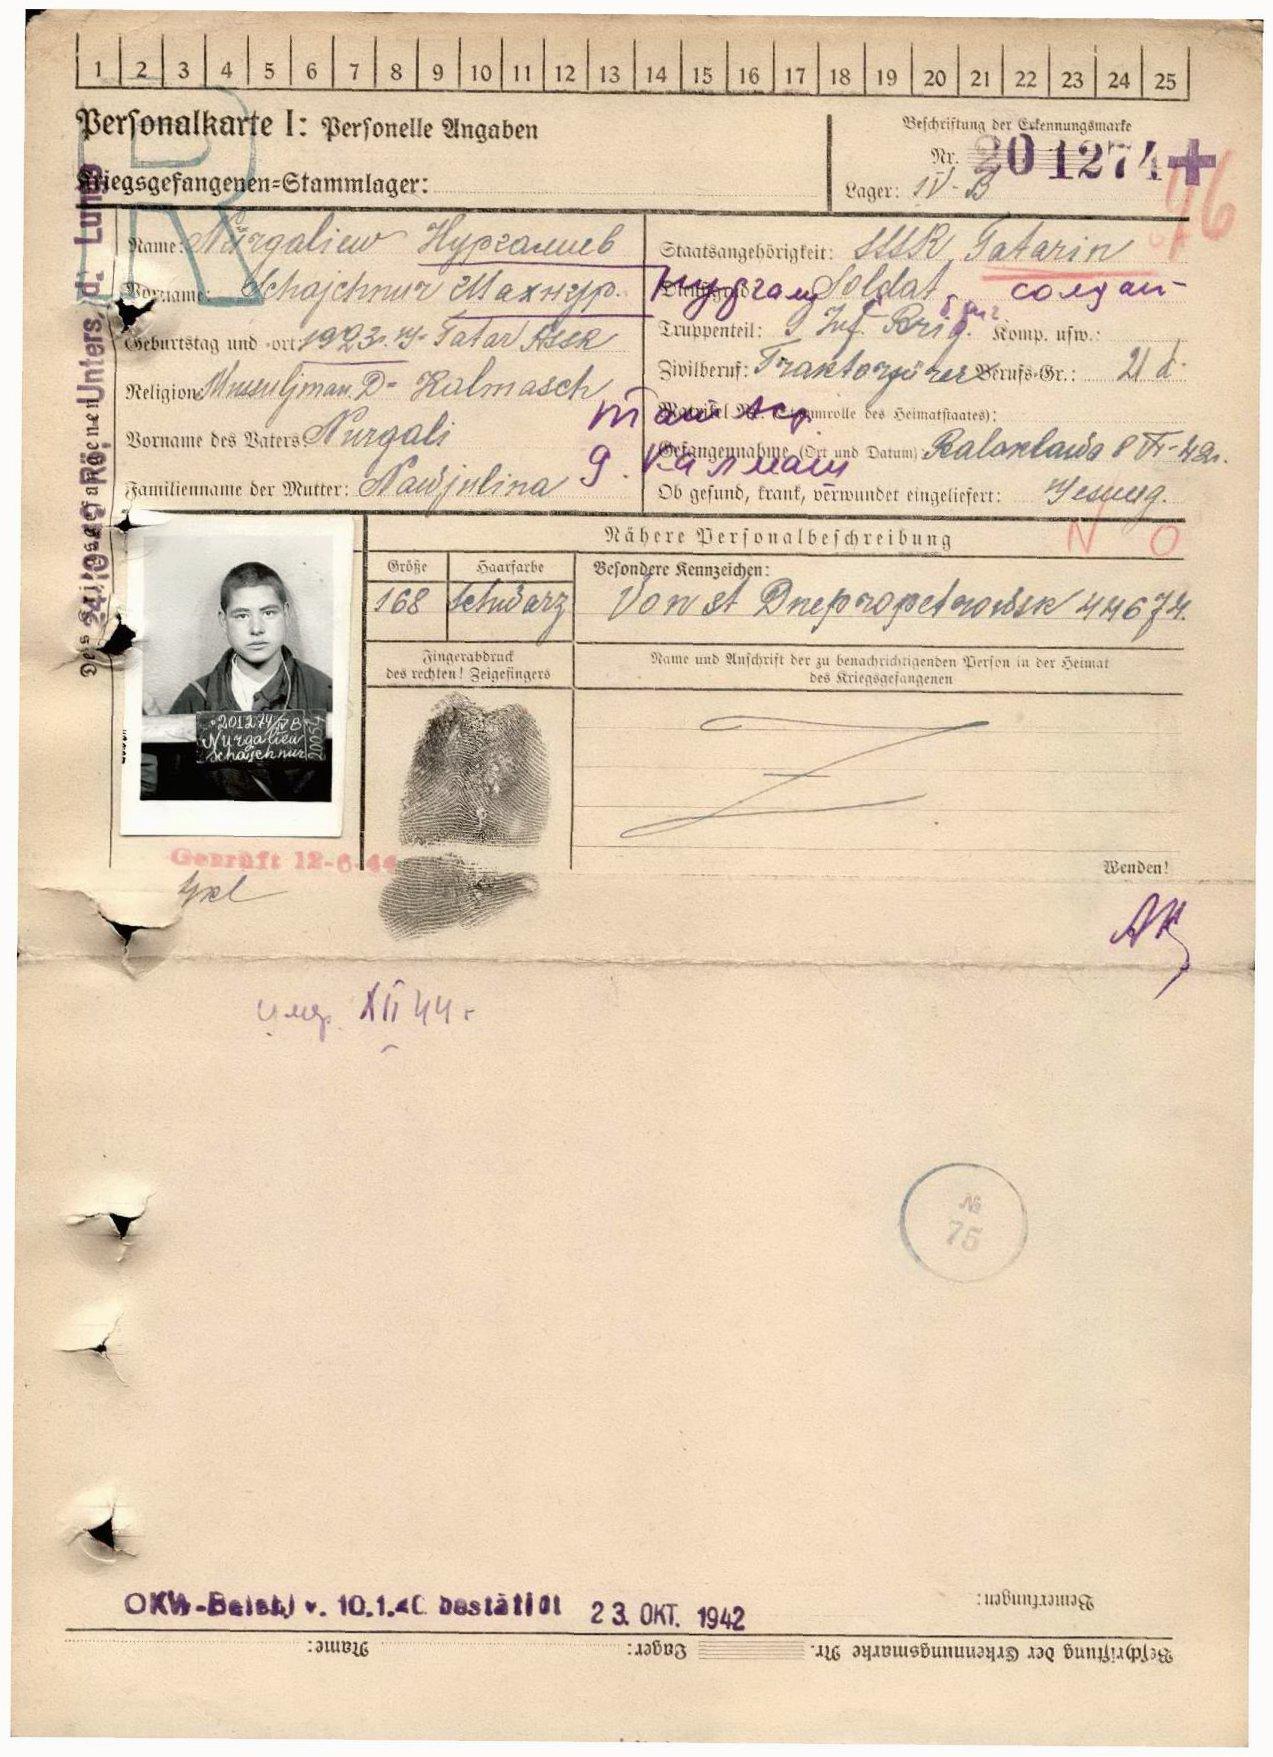 1 2 3 4 5 6 7 8 9 10 11 12 13 14 15 16 17 18 19 20 21 22 23 24 25
Personalkarte I: Personelle Angaben
Kriegsgefangenen=Stammlager:
Beschriftung der Erkennungsmarke
Nr. 201274 +
Lager: IV-B
Name: Nurgaliew Нургалиев
Vorname: Schajchnur Шахнур.
Geburtstag und -ort: 1923. Tatar ASSR
Religion: Musuljman. D- Kalmasch
Vorname des Vaters: Nurgali
Familienname der Mutter:
Staatsangehörigkeit: SSSR, Tatarin
Dienstgrad: Soldat солдат
Truppenteil: 9 Inf. Brig. Komp. usw.:
Zivilberuf: Berufs-Gr.: 21 d.
Matrikel Nr. (Stammrolle des Heimatstaates):
Gefangennahme (Ort und Datum): Balaklawa 8
Ob gesund, krank, verwundet eingeliefert:
Nähere Personalbeschreibung
N O
Größe Haarfarbe Besondere Kennzeichen:
168 schwarz Von st Dnepropetrowsk 44674.
Fingerabdruck
des rechten! Zeigefingers
Name und Anschrift der zu benachrichtigenden Person in der Heimat
des Kriegsgefangenen
201274/IVB
Nurgaliew
Schajchnur
Geprüft 12-6-44
Wenden!
умер. XII 44 г
№
75
OKW-Befehl v. 10.1.40 bestätigt 23. OKT. 1942
Bemerkungen:
Beschriftung der Erkennungsmarke Nr. Lager: Name: